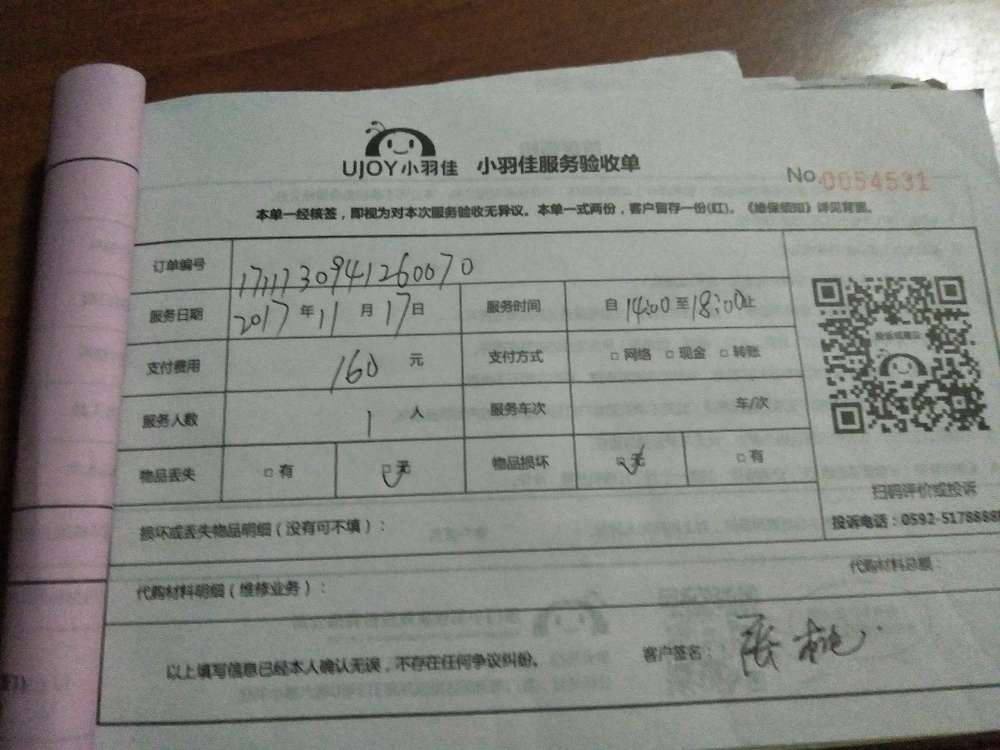 UJOY小羽佳 小羽佳服务验收单
No 0054531
本单一经核签，即视为对本次服务验收无异议。本单一式两份，客户留存一份(红)。《维保须知》详见背面。
订单编号 1711130941260070
服务日期 2017年11月17日 服务时间 自14:00至18:00止
支付费用 160元 支付方式 □网络 □现金 □转账
服务人数 1人 服务车次 年/次
物品丢失 □有 □无 物品损坏 □无 □有
扫码评价或投诉
损坏或丢失物品明细（没有可不填）： 投诉电话：0592-5178888
代购材料明细（维修业务）： 代购材料总额：
以上填写信息已经本人确认无误，不存在任何争议纠纷。 客户签名：